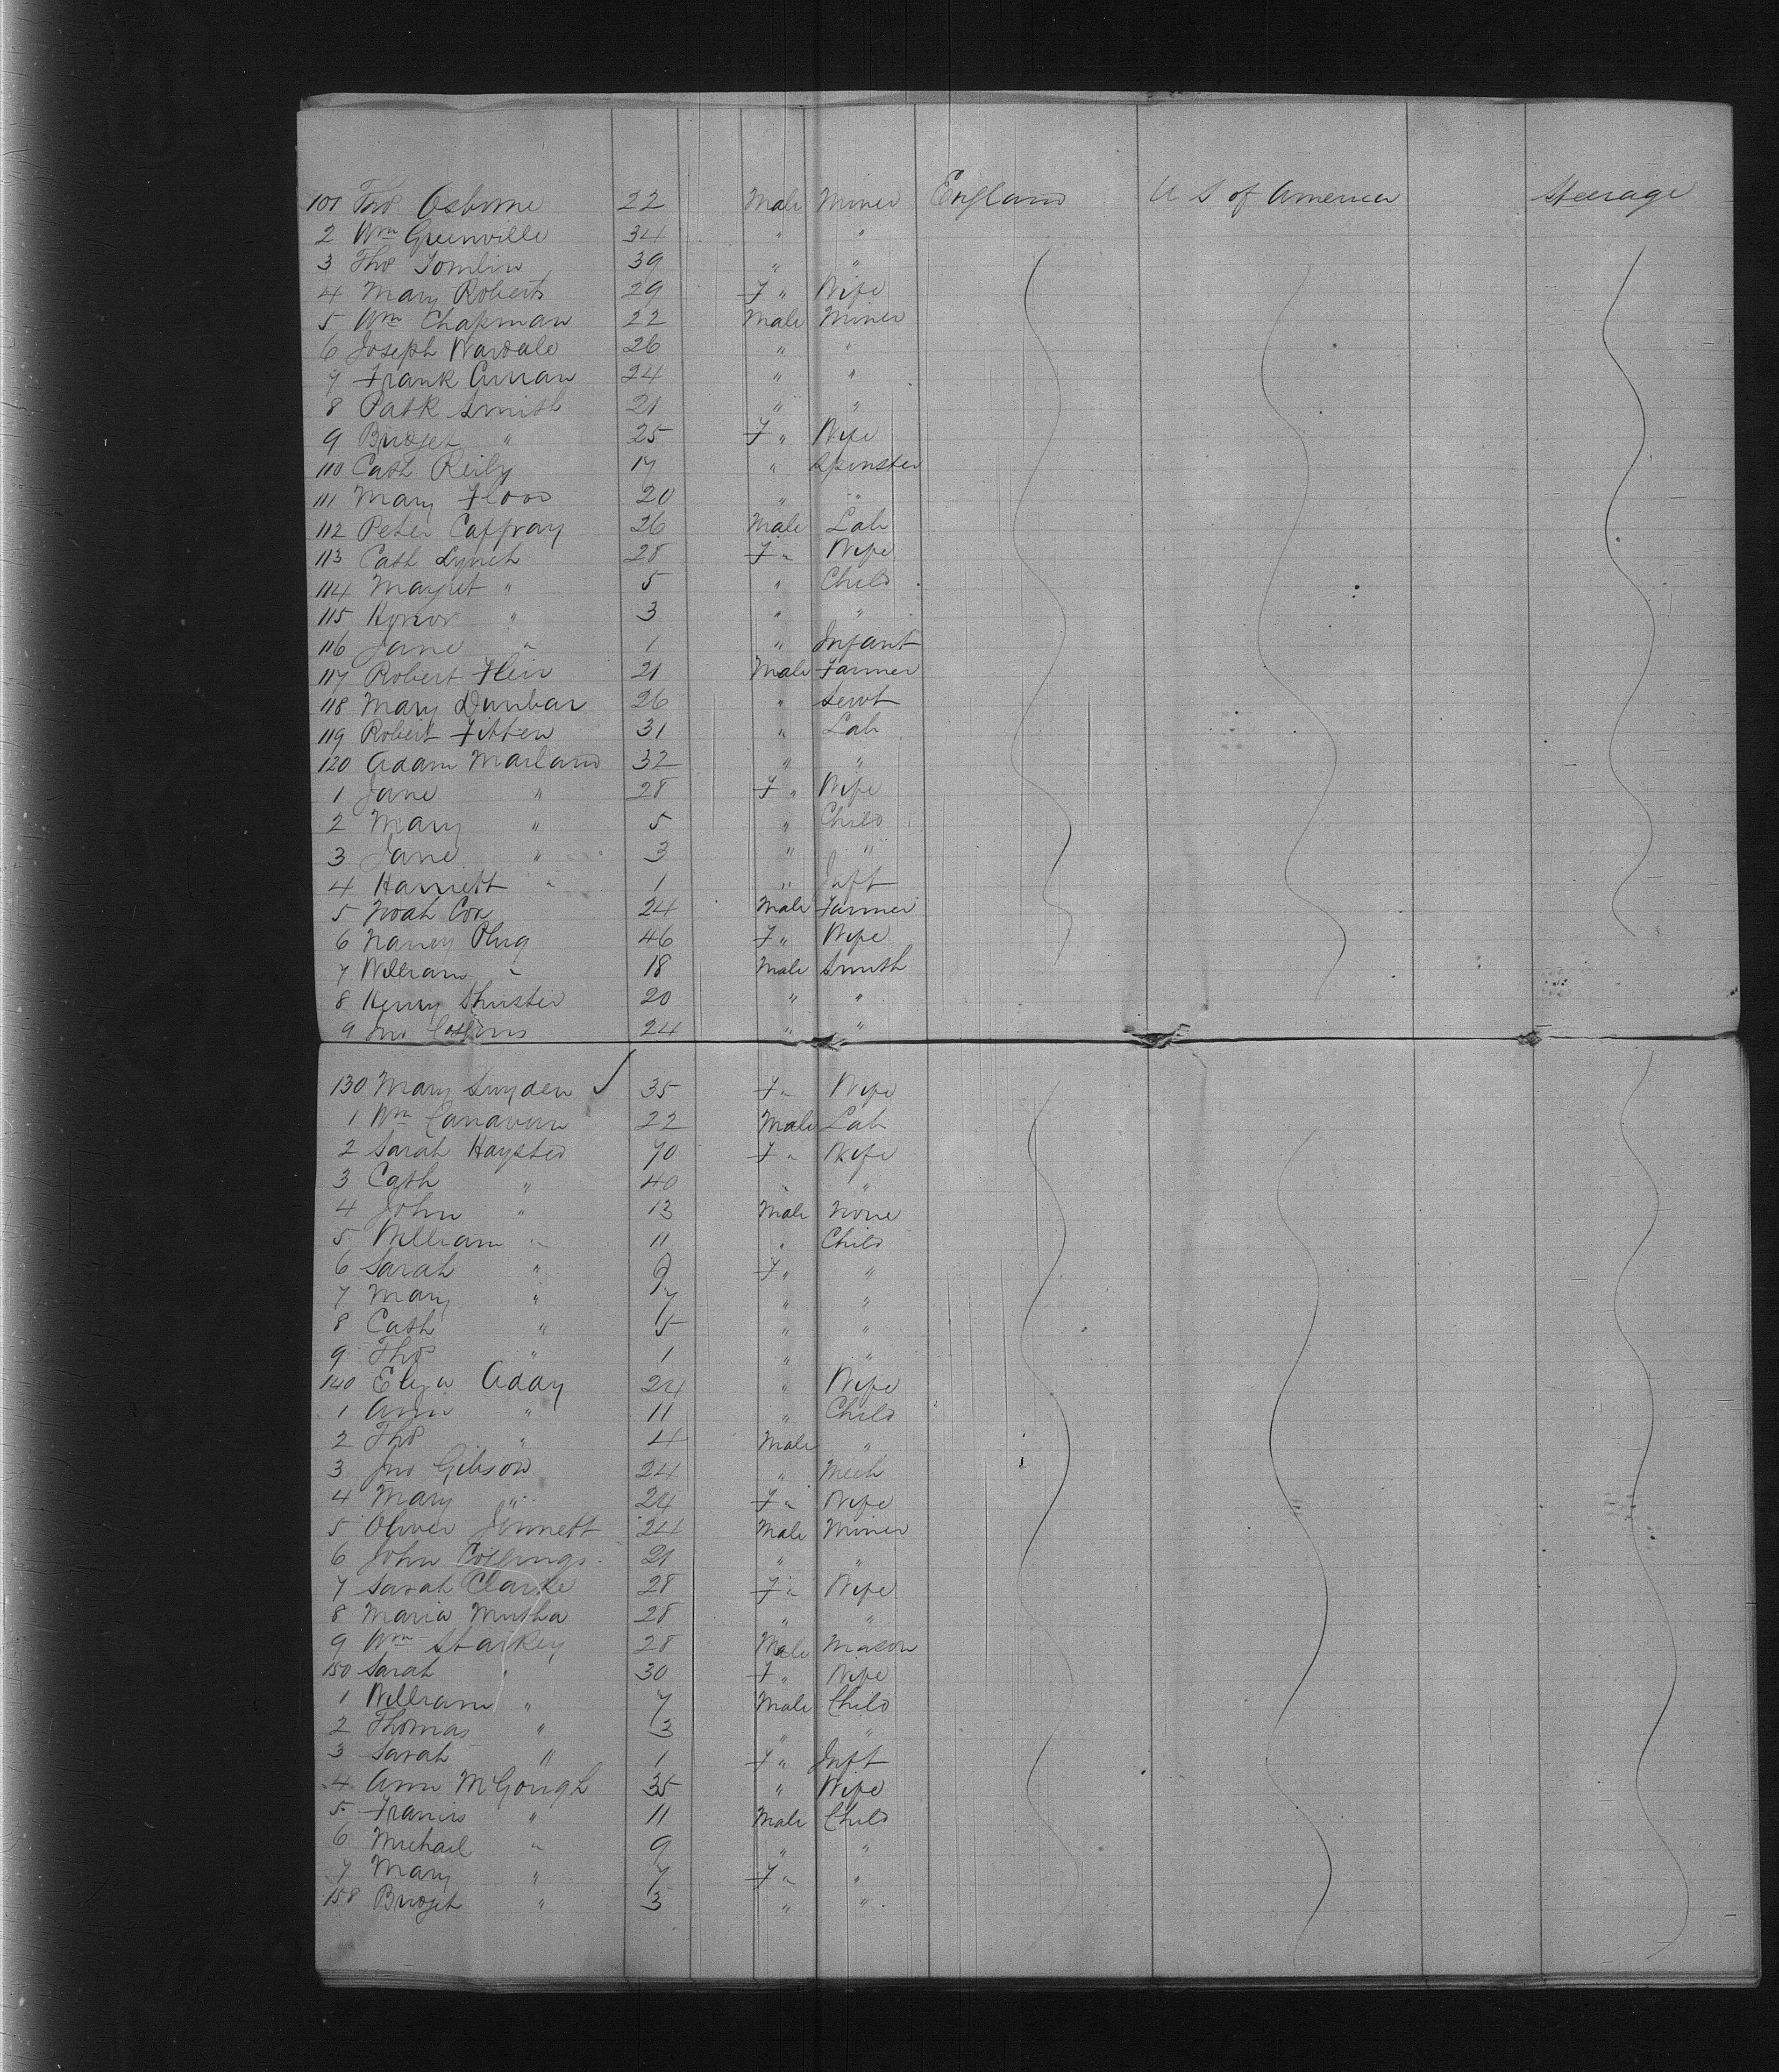 101 Thos Osborne 22 Male Miner England U S of America Steerage
2 Wm Greenville 34 " "
3 Thos Tomlin 39 " "
4 Mary Roberts 29 F " Wife
5 Wm Chapman 22 Male Miner
6 Joseph Wardale 26 " "
7 Frank Curran 24 " "
8 Patk Smith 21 " "
9 Bridget " 25 F " Wife
110 Cath Reily 17 " Spinster
111 Mary Flood 20 " "
112 Peter Caffray 26 Male Lab
113 Cath Lynch 28 F " Wife
114 Margret " 5 " Child
115 Honor " 3 " "
116 Jane " 1 " Infant
117 Robert 21 Male Farmer
118 Mary Dunbar 26 " Servt
119 Robert Fitten 31 " Lab
120 Adam Marland 32 " "
1 Jane " 28 F " Wife
2 Mary " 5 " Child
3 Jane " 3 " "
4 Harriett " 1 " Inft
5 Noah Cox 24 Male Farmer
6 Nancy 46 F " Wife
7 William " 18 Male Smith
8 Henry Shuster 20 " "
9 Jno 24 " "
130 Mary Snyden 35 F " Wife
1 Wm Canavan 22 Male Lab
2 Sarah Haysted 70 F " Wife
3 Cath " 40 " "
4 John " 13 Male None
5 William " 11 " Child
6 Sarah " 9 F " "
7 Mary " 7 " "
8 Cath " 5 " "
9 Thos " 1 " "
140 Eliza Aday 24 " Wife
1 Ann " 11 " Child
2 Thos " 4 Male "
3 Jno Gibson 24 " Mech
4 Mary " 24 F " Wife
5 Oliver Jennett 24 Male Miner
6 John Collings 21 " "
7 Sarah Clarke 28 F " Wife
8 Maria Murtha 28 " "
9 Wm Starkey 28 Male Mason
150 Sarah " 30 F " Wife
1 William " 7 Male Child
2 Thomas " 3 " "
3 Sarah " 1 F " Inft
4 Ann McGough 35 " Wife
5 Francis " 11 Male Child
6 Michael " 9 " "
7 Mary " 7 F " "
158 Bridget " 3 " "